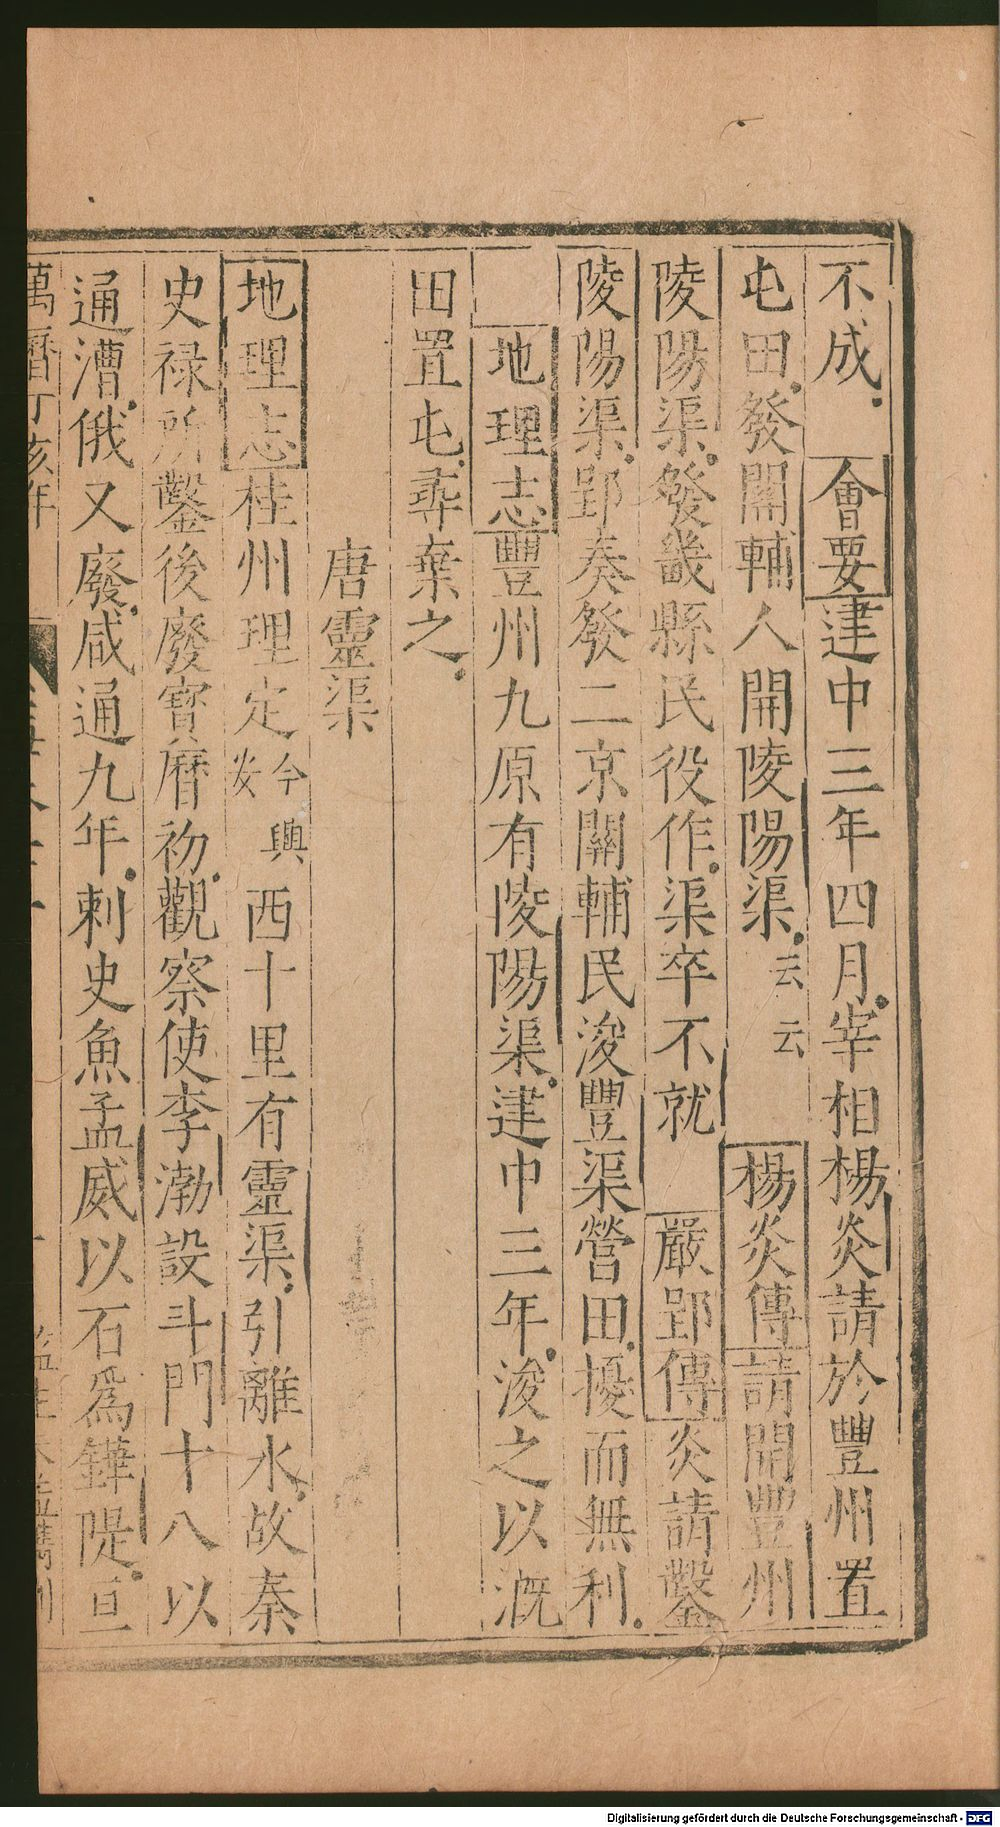 不成會要建中三年四月宰相楊炎請於豐州置
屯田發關輔人開陵陽渠云云楊炎傳請開豐州
陵陽渠發畿縣民役作渠卒不就嚴郢傳炎請鑿
陵陽渠郢奏發二京關輔民浚豐渠營田擾而無利
地理志豐州九原有陵陽渠建中三年浚之以溉
田置屯尋棄之
唐靈渠
地理志桂州理定今興安西十里有靈渠引離水故秦
史祿所鑿後廢寶曆初觀察使李渤設斗門十八以
通漕俄又廢咸通九年刺史魚孟威以石為鏵隄亘
萬曆丁亥年
Digitalisierung gefördert durch die Deutsche Forschungsgemeinschaft - DFG